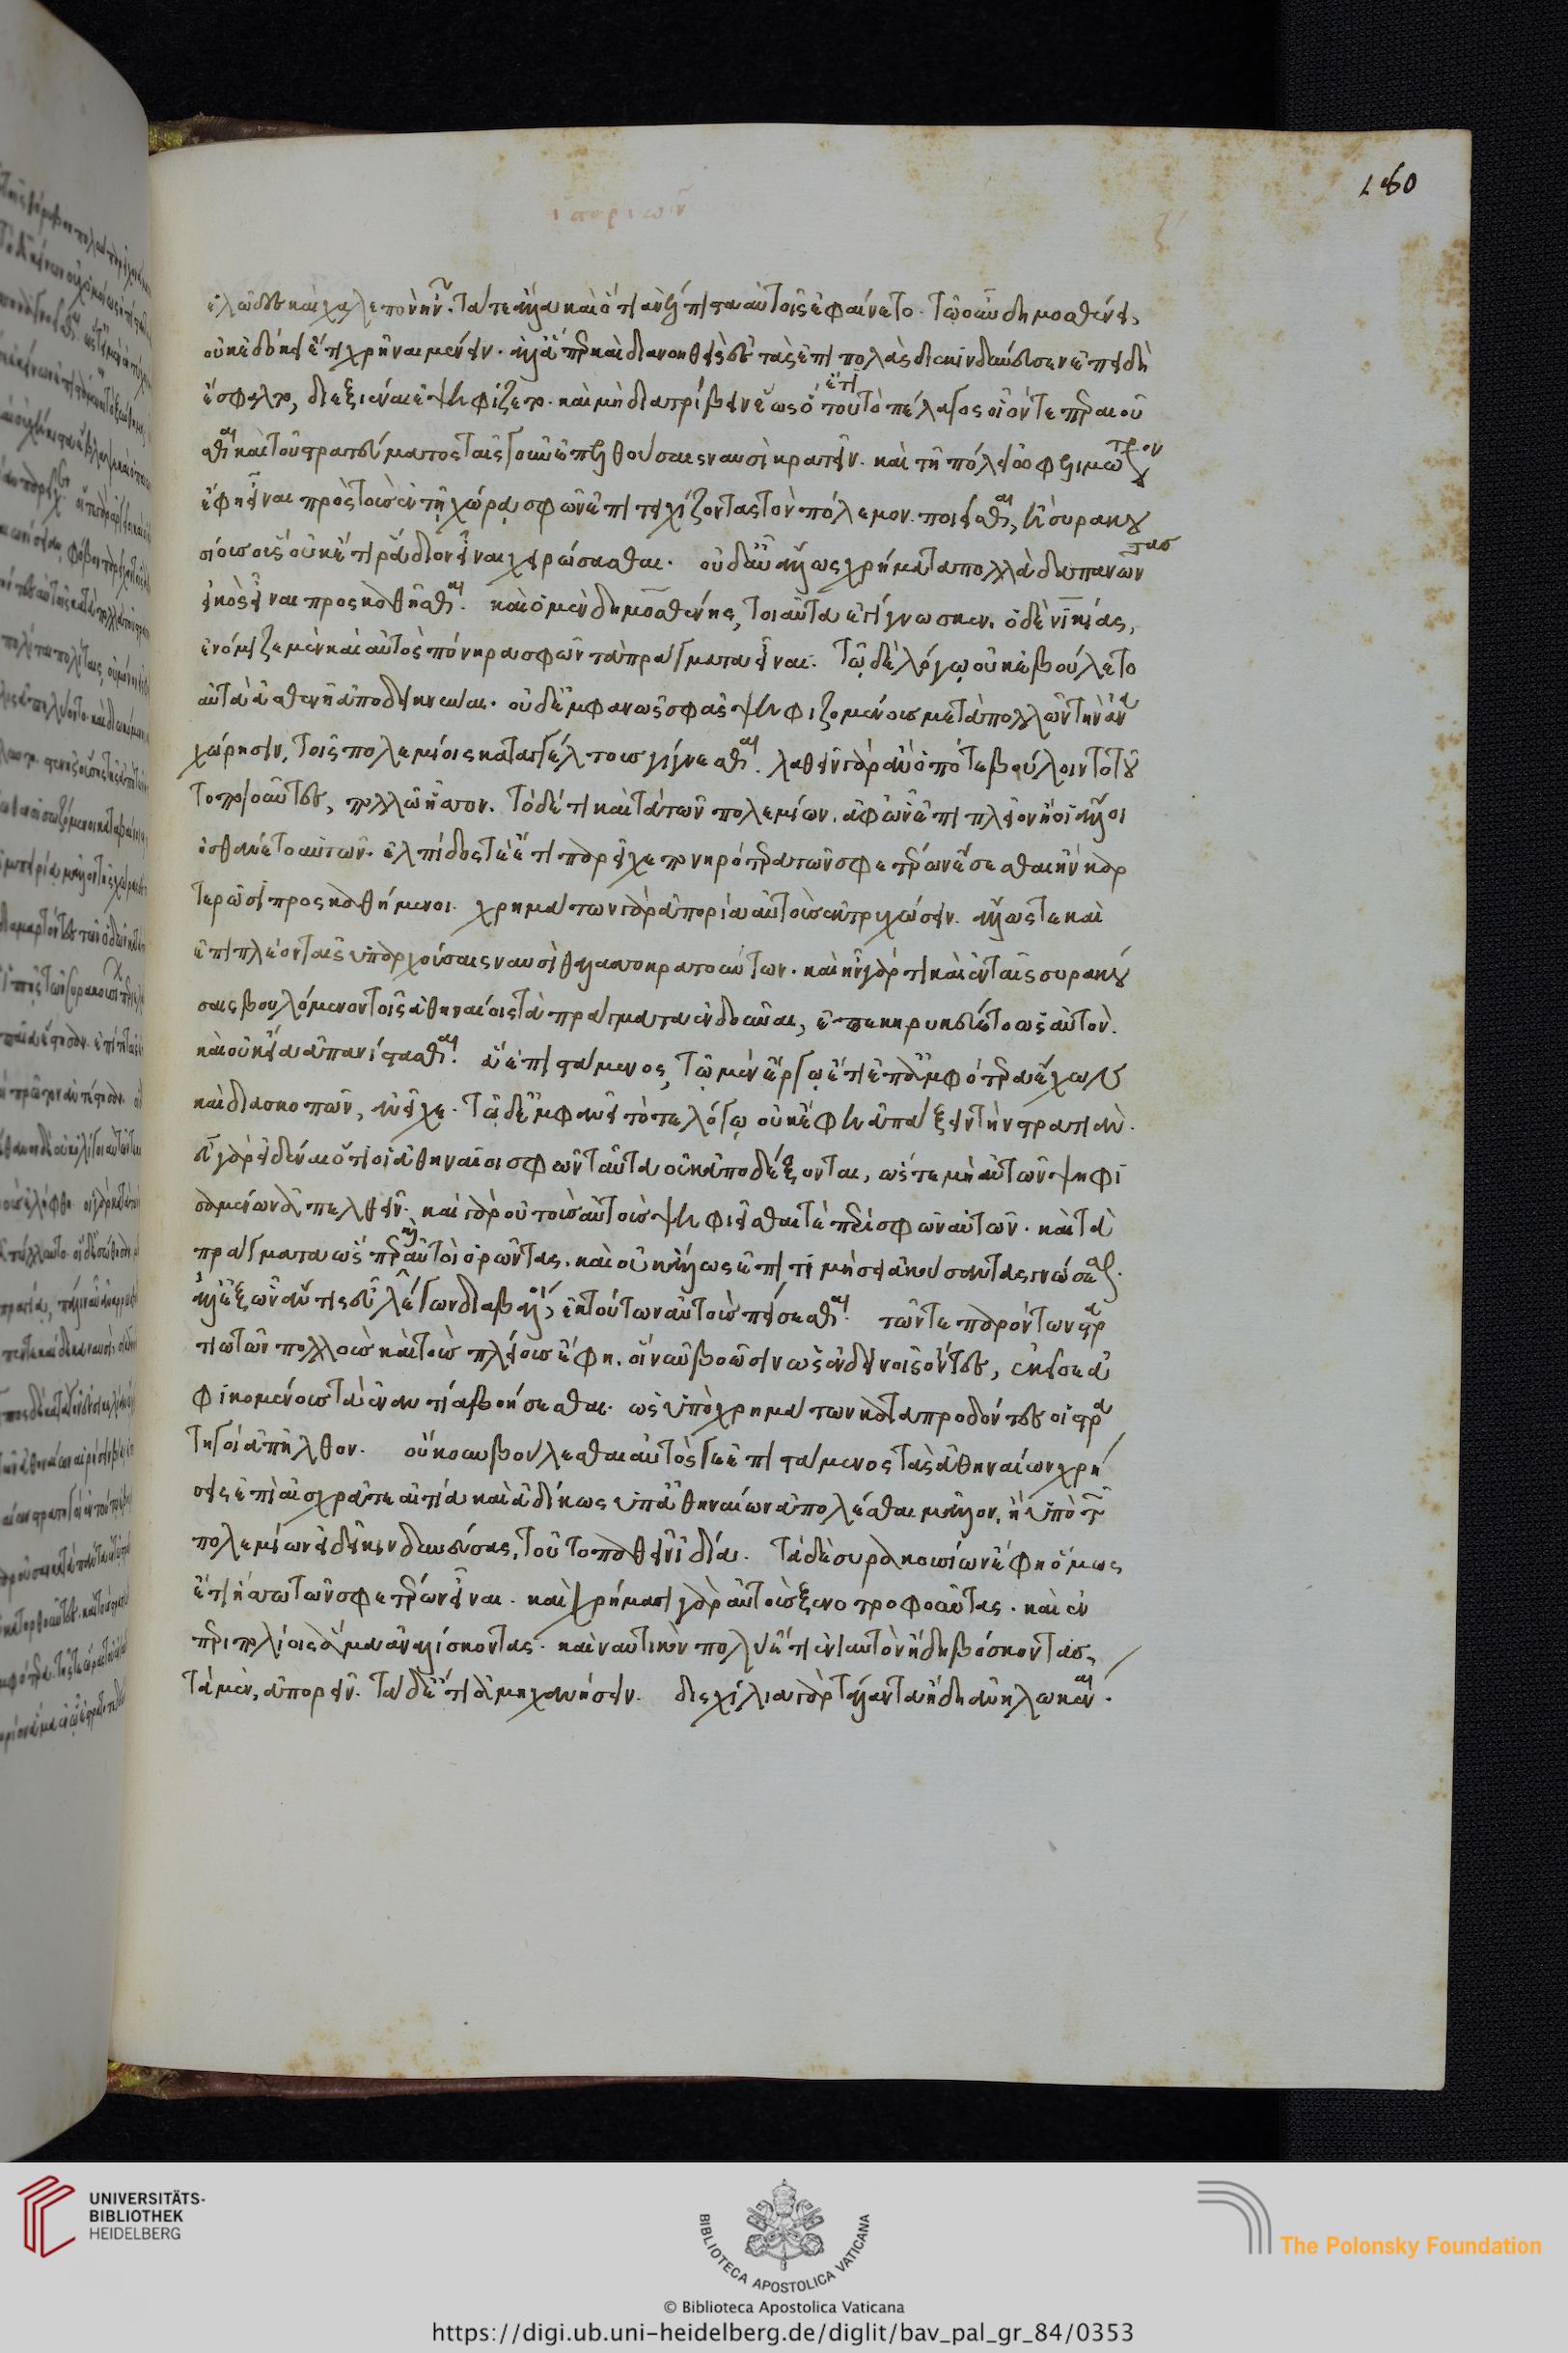 ἱστοριῶν ζ΄
160
ἑλῶδες καὶ χαλεπὸν ἦν. τά τε ἄλλα καὶ ὅτι ἀνέλπιστα αὐτοῖς ἐφαίνετο. τῷ οὖν δημοσθένει,
οὐκ ἐδόκει ἔτι χρῆναι μένειν. ἀλλ' ἅπερ καὶ διανοηθεὶς ἐς τὰς ἐπιπολὰς διεκινδύνευσεν ἐπειδὴ
ἔσφαλτο, διεξιέναι ἐψηφίζετο. καὶ μὴ διατρίβειν ἕως ἔτι τοῦτο πέλαγος οἷόν τε περαιοῦ
σθαι καὶ τοῦ στρατεύματος ταῖς γοῦν ἐπελθούσαις ναυσὶ κρατεῖν. καὶ τῇ πόλει ὠφελιμώτερον
ἔφη εἶναι πρὸς τοὺς ἐν τῇ χώρᾳ σφῶν ἐπιτειχίζοντας τὸν πόλεμον ποιεῖσθαι, ἢ συρακου
σίους οὓς οὐκέτι ῥᾴδιον εἶναι χειρώσασθαι. οὐδ' αὖ ἄλλως χρήματα πολλὰ δαπανῶντας
εἰκὸς εἶναι προσκαθῆσθαι. καὶ ὁ μὲν δημοσθένης, τοιαῦτα ἐγίγνωσκεν. ὁ δὲ νικίας,
ἐνόμιζε μὲν καὶ αὐτὸς πόνηρα σφῶν τὰ πράγματα εἶναι. τῷ δὲ λόγῳ οὐκ ἐβούλετο
αὐτὰ ἀσθενῆ ἀποδεικνύναι. οὐδ' ἐμφανῶς σφᾶς ψηφιζομένους μετὰ πολλῶν τὴν ἀνα
χώρησιν, τοῖς πολεμίοις καταγγέλτους γίγνεσθαι. λαθεῖν γὰρ ἂν ὁπότε βούλοιντο τοῦ
το ποιοῦντες, πολλῷ ἧσσον. τὸ δέ τι καὶ τὰ τῶν πολεμίων. ἀφ' ὧν ἐπὶ πλεῖον ἢ οἱ ἄλλοι
ᾐσθάνετο αὐτῶν. ἐλπίδος τι ἔτι παρεῖχε πονηρότερα τῶν σφετέρων ἔσεσθαι ἢν καρ
τερῶσι προσκαθήμενοι. χρημάτων γὰρ ἀπορίᾳ αὐτοὺς ἐκτρυχώσειν. ἄλλως τε καὶ
ἐπιπλέον ταῖς ὑπαρχούσαις ναυσὶ θαλασσοκρατούντων. καὶ ἦν γάρ τι καὶ ἐν ταῖς συρακού
σαις βουλόμενον τοῖς ἀθηναίοις τὰ πράγματα ἐνδοῦναι, ἐπεκηρυκεύετο ὡς αὐτὸν.
καὶ οὐκ εἴα ἀπανίστασθαι. ἃ ἐπιστάμενος, τῷ μὲν ἔργῳ ἔτι ἐπ' ἀμφότερα ἔχων
καὶ διασκοπῶν, ἀνεῖχε. τῷ δ' ἐμφανεῖ τότε λόγῳ οὐκ ἔφη ἀπάξειν τὴν στρατιάν.
εὖ γὰρ εἰδέναι ὅτι οἱ ἀθηναῖοι σφῶν ταῦτα οὐκ ἀποδέξονται, ὥστε μὴ αὐτῶν ψηφι
σαμένων ἀπελθεῖν. καὶ γὰρ οὐ τοὺς αὐτοὺς ψηφιεῖσθαί τε περὶ σφῶν αὐτῶν. καὶ τὰ
πράγματα ὥσπερ καὶ αὐτοὶ ὁρῶντας. καὶ οὐκ ἄλλως ἐπιτιμήσει ἀκούσαντας γνώσεσθαι.
ἀλλ' ἐξ ὧν ἄν τις εὖ λέγων διαβάλλοι, ἐκ τούτων αὐτοὺς πείσεσθαι. τῶν τε παρόντων στρα
τιωτῶν πολλοὺς καὶ τοὺς πλείους ἔφη. οἳ νῦν βοῶσιν ὡς ἐν δεινοῖς ὄντες, ἐκεῖσε ἀ
φικομένους τὰ ἐναντία βοήσεσθαι. ὡς ὑπὸ χρημάτων καταπροδόντες οἱ στρα
τηγοὶ ἀπῆλθον. οὔκουν βούλεσθαι αὐτός γε ἐπιστάμενος τὰς ἀθηναίων χρή
σεις ἐπὶ αἰσχρᾷ τε αἰτίᾳ καὶ ἀδίκως ὑπ' ἀθηναίων ἀπολέσθαι μᾶλλον, ἢ ὑπὸ τῶν
πολεμίων εἰ δεῖ κινδυνεύσας, τοῦτο παθεῖν ἰδίᾳ. τὰ δὲ συρακουσίων ἔφη ὅμως
ἔτι ἥσσω τῶν σφετέρων εἶναι. καὶ χρήμασι γὰρ αὐτοὺς ξενοτροφοῦντας. καὶ ἐν
περιπολίοις ἅμα ἀναλίσκοντας. καὶ ναυτικὸν πολὺ ἔτι ἐνιαυτὸν ἤδη βόσκοντας,
τὰ μὲν, ἀπορεῖν. τὰ δ' ἔτι ἀμηχανήσειν. δισχίλια γὰρ τάλαντα ἤδη ἀνηλωκέναι.
UNIVERSITÄTS-
BIBLIOTHEK
HEIDELBERG
BIBLIOTECA APOSTOLICA VATICANA
The Polonsky Foundation
© Biblioteca Apostolica Vaticana
https://digi.ub.uni-heidelberg.de/diglit/bav_pal_gr_84/0353